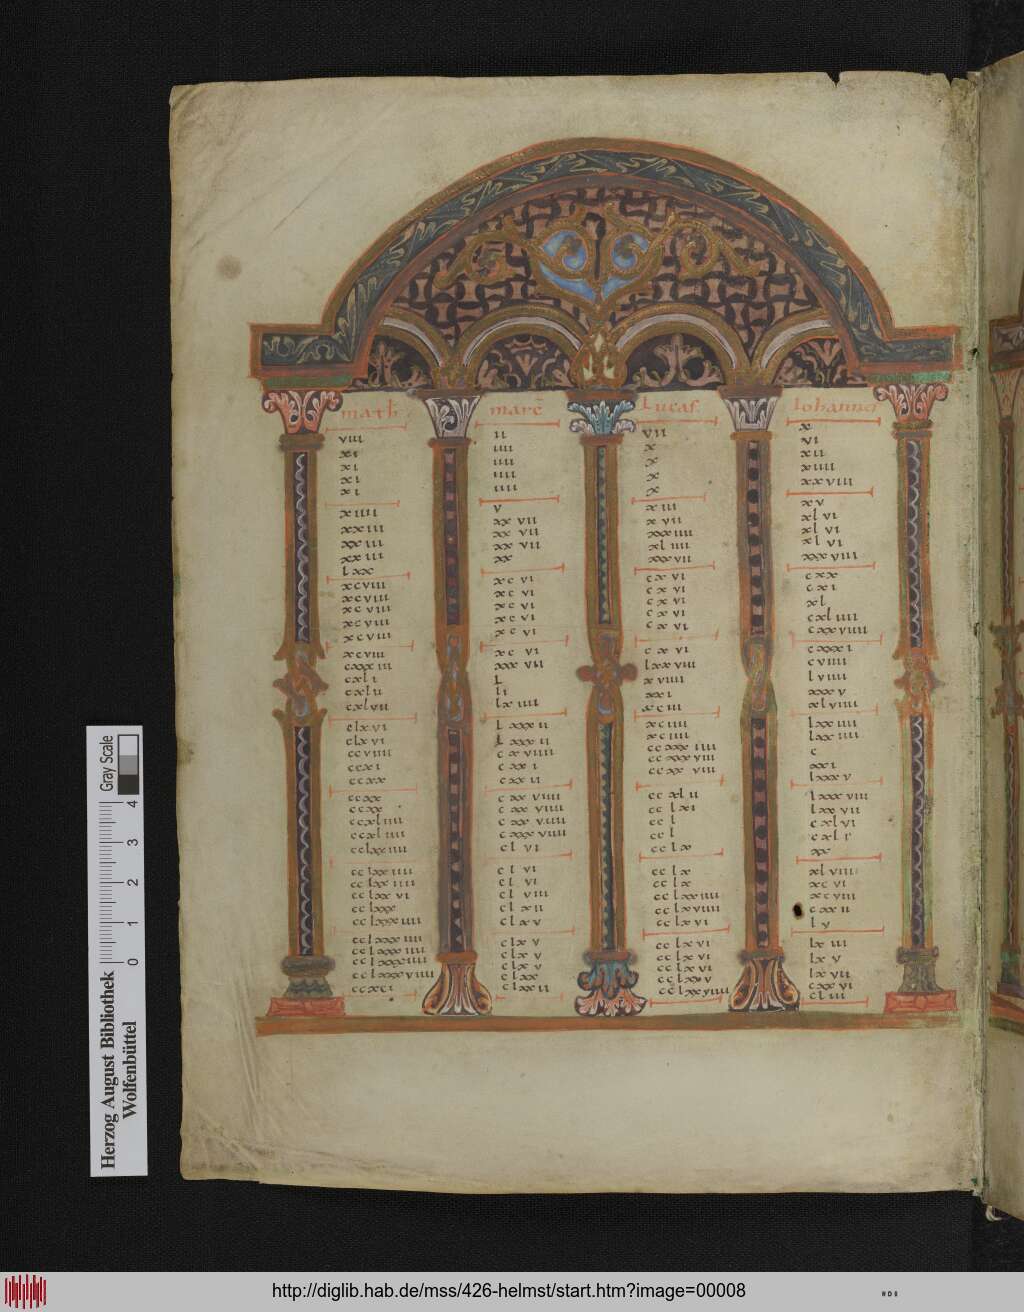 math
viii
xi
xi
xi
xi
xiiii
xxiii
xxiii
xxiii
lxx
xcviii
xcviii
xcviii
xcviii
xcviii
xcviii
cxxxiii
cxli
cxlii
cxlvii
clxvi
clxvi
ccviiii
ccxi
ccxx
ccxx
ccxx
ccxliiii
ccxliiii
cclxxiiii
cclxxiiii
cclxxiiii
cclxxvi
cclxxx
cclxxxiiii
cclxxxiiii
cclxxxiiii
cclxxxiiii
cclxxxviiii
ccxci
marc̄
ii
iiii
iiii
iiii
iiii
v
xxvii
xxvii
xxvii
xx
xcvi
xcvi
xcvi
xcvi
xcvi
xcvi
xxxvii
l
li
lxiiii
lxxxii
lxxxii
cxviiii
cxxi
cxxii
cxxviiii
cxxviiii
cxxviiii
cxxxviiii
clvi
clvi
clvi
clviii
clxii
clxv
clxv
clxv
clxv
clxx
clxxii
lucas
vii
x
x
x
x
xiii
xvii
xxxiiii
xliiii
xxxvii
cxvi
cxvi
cxvi
cxvi
cxvi
cxvi
lxxviii
xviiii
xxi
xciii
xciiii
xciiii
ccxxxiiii
ccxxxviii
ccxxviii
ccxlii
cclxi
ccl
ccl
cclx
cclx
cclx
cclxxiiii
cclxviiii
cclxvi
cclxvi
cclxvi
cclxvi
cclxxv
cclxxviiii
Iohannes
x
vi
xii
xiiii
xxviii
xv
xlvi
xlvi
xlvi
xxxviii
cxx
cxi
xl
cxliiii
cxxviiii
cxxxi
cviiii
lviiii
xxxv
xlviiii
lxxiiii
lxxiiii
c
xxi
lxxxv
lxxxviii
lxxvii
cxlvi
cxli
xx
xlviii
xcvi
xcviii
cxxii
lv
lxiii
lxv
lxvii
cxxvi
cliii
Gray Scale
4
3
2
1
0
Herzog August Bibliothek
Wolfenbüttel
http://diglib.hab.de/mss/426-helmst/start.htm?image=00008